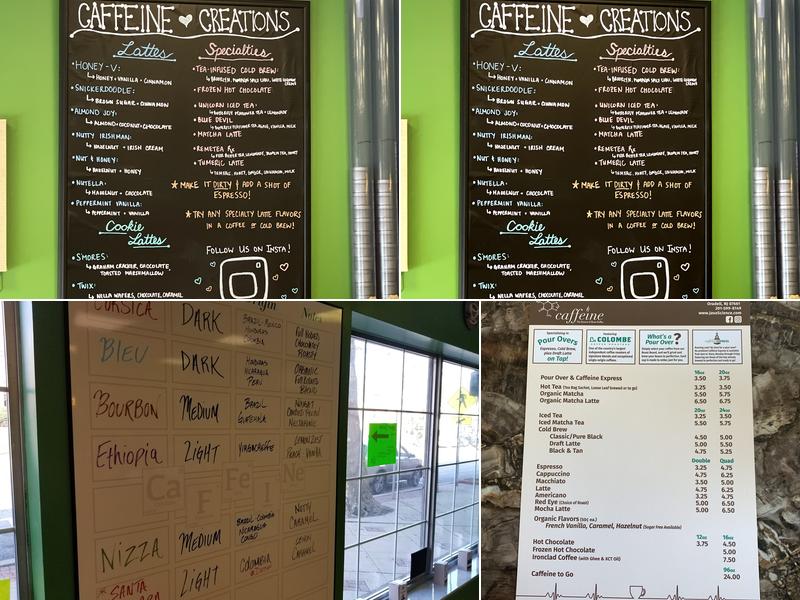 CAFFEINE ♥ CREATIONS
Lattes
• HONEY-V:
↳ HONEY + VANILLA + CINNAMON
• SNICKERDOODLE:
↳ BROWN SUGAR + CINNAMON
• ALMOND JOY:
↳ ALMOND + COCONUT + CHOCOLATE
• NUTTY IRISHMAN:
↳ HAZELNUT + IRISH CREAM
• NUT & HONEY:
↳ HAZELNUT + HONEY
• NUTELLA:
↳ HAZELNUT + CHOCOLATE
• PEPPERMINT VANILLA:
↳ PEPPERMINT + VANILLA
Cookie Lattes
• S'MORES:
↳ GRAHAM CRACKER, CHOCOLATE,
TOASTED MARSHMALLOW
• TWIX:
↳ NILLA WAFERS, CHOCOLATE, CARAMEL
Specialties
• TEA-INFUSED COLD BREW:
• FROZEN HOT CHOCOLATE
• UNICORN ICED TEA:
↳ BUTTERFLY FLOWER TEA + LEMONADE
• BLUE DEVIL
• MATCHA LATTE
• REMETEA Rx
• TUMERIC LATTE
★ MAKE IT DIRTY & ADD A SHOT OF
ESPRESSO!
★ TRY ANY SPECIALTY LATTE FLAVORS
IN A COFFEE OR COLD BREW!
FOLLOW US ON INSTA!
CAFFEINE ♥ CREATIONS
Lattes
• HONEY-V:
↳ HONEY + VANILLA + CINNAMON
• SNICKERDOODLE:
↳ BROWN SUGAR + CINNAMON
• ALMOND JOY:
↳ ALMOND + COCONUT + CHOCOLATE
• NUTTY IRISHMAN:
↳ HAZELNUT + IRISH CREAM
• NUT & HONEY:
↳ HAZELNUT + HONEY
• NUTELLA:
↳ HAZELNUT + CHOCOLATE
• PEPPERMINT VANILLA:
↳ PEPPERMINT + VANILLA
Cookie Lattes
• S'MORES:
↳ GRAHAM CRACKER, CHOCOLATE,
TOASTED MARSHMALLOW
• TWIX:
↳ NILLA WAFERS, CHOCOLATE, CARAMEL
Specialties
• TEA-INFUSED COLD BREW:
• FROZEN HOT CHOCOLATE
• UNICORN ICED TEA:
↳ BUTTERFLY FLOWER TEA + LEMONADE
• BLUE DEVIL
• MATCHA LATTE
• REMETEA Rx
• TUMERIC LATTE
★ MAKE IT DIRTY & ADD A SHOT OF
ESPRESSO!
★ TRY ANY SPECIALTY LATTE FLAVORS
IN A COFFEE OR COLD BREW!
FOLLOW US ON INSTA!
CORSICA DARK
BLEU DARK HONDURAS NICARAGUA PERU
BOURBON MEDIUM BRAZIL GUATEMALA
Ethiopia LIGHT
NIZZA MEDIUM NUTTY CARAMEL
SANTA LIGHT COLOMBIA
caffeine
Oradell, NJ 07661
www.JavaScience.com
Specializing in
Pour Overs
Espresso, Cold Brew,
plus Draft Latte
on Tap!
Featuring
La COLOMBE
COFFEE ROASTERS
What's a
Pour Over?
16oz 20oz
Pour Over & Caffeine Express 3.50 3.75
Hot Tea (Tea Bag Sachet, Loose Leaf brewed or to go) 3.25 3.50
Organic Matcha 5.50 5.75
Organic Matcha Latte 6.50 6.75
20oz 24oz
Iced Tea 3.25 3.50
Iced Matcha Tea 5.50 5.75
Cold Brew
Classic/Pure Black 4.50 5.00
Draft Latte 5.00 5.50
Black & Tan 4.75 5.25
Double Quad
Espresso 3.25 4.75
Cappuccino 4.75 6.25
Macchiato 3.50 5.00
Latte 4.75 6.25
Americano 3.25 4.75
Red Eye (Choice of Roast) 5.00 6.50
Mocha Latte 5.00 6.50
Organic Flavors (50¢ ea.)
French Vanilla, Caramel, Hazelnut (Sugar Free Available)
12oz 16oz
Hot Chocolate 3.75 4.50
Frozen Hot Chocolate 5.00
Ironclad Coffee (with Ghee & XCT Oil) 7.50
96oz
Caffeine to Go 24.00